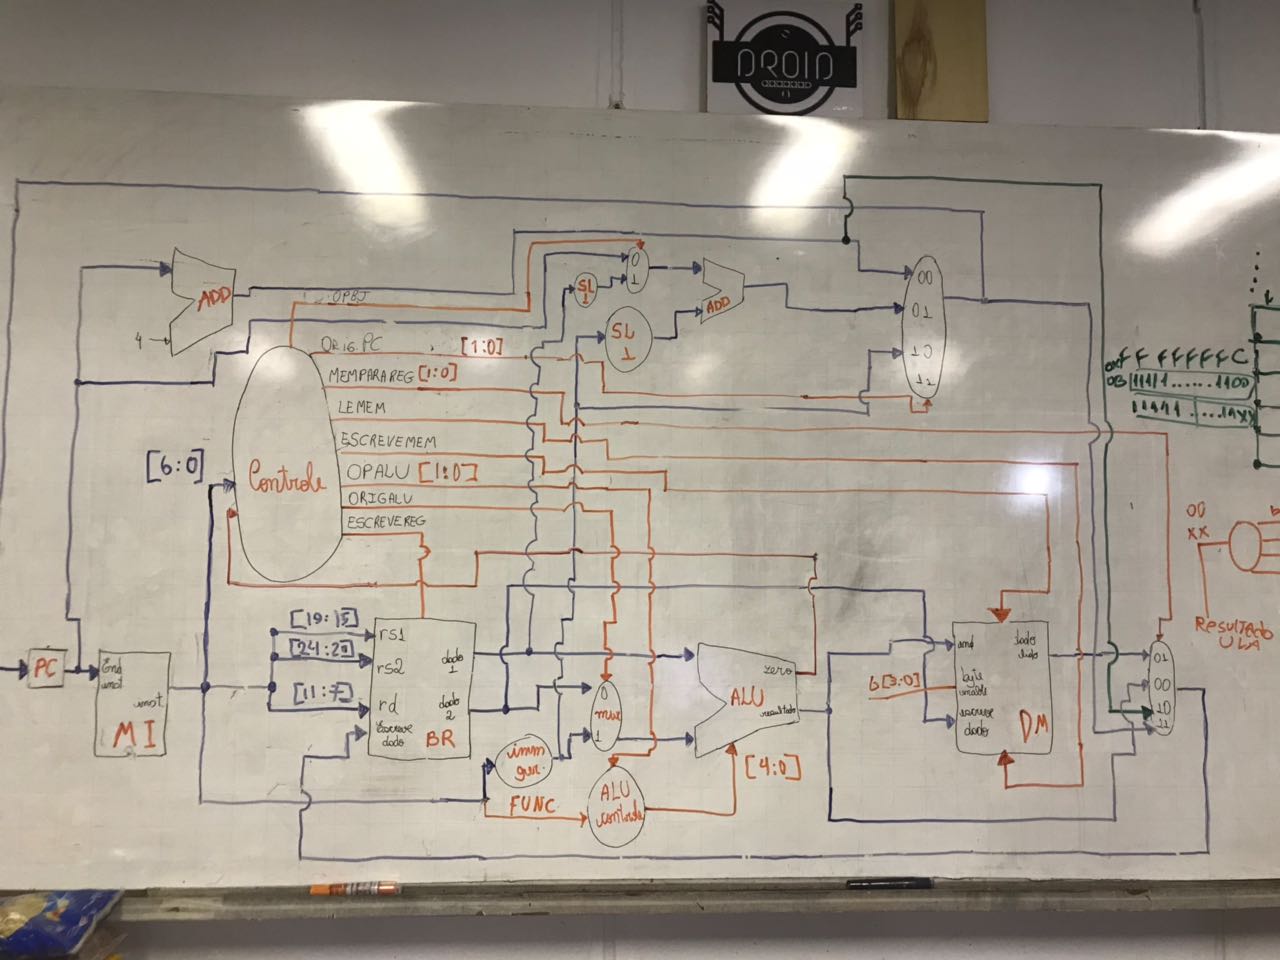 DROID
ADD
4
OPBJ
ORIG.PC [1:0]
MEMPARAREG [1:0]
LEMEM
ESCREVEMEM
OPALU [1:0]
ORIGALU
ESCREVEREG
[6:0]
Controle
0
1
SL
1
SL
1
ADD
00
01
10
11
F FFFFFC
11111......1100
00
XX
Resultado
ULA
PC
End
inst
inst
MI
[19:15]
[24:20]
[11:7]
rs1
rs2
rd
Escreve
dado
dado
1
dado
2
BR
0
mux
1
imm
ger.
FUNC
ALU
controle
zero
ALU
resultado
[4:0]
b[3:0]
end
byte
enable
escreve
dado
dado
lido
DM
01
00
10
11